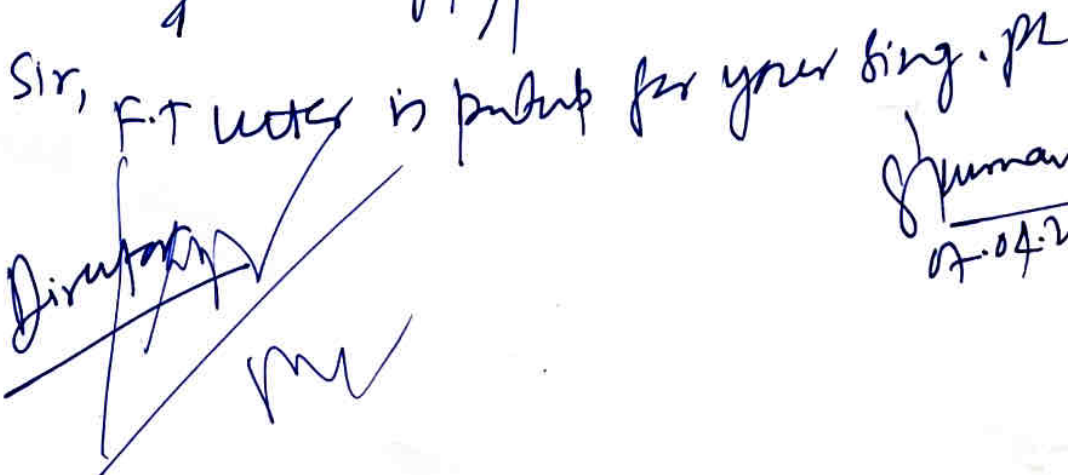 Sir,
F.T letter is putup for your sing. pl
Skumar
07.04.2
Director